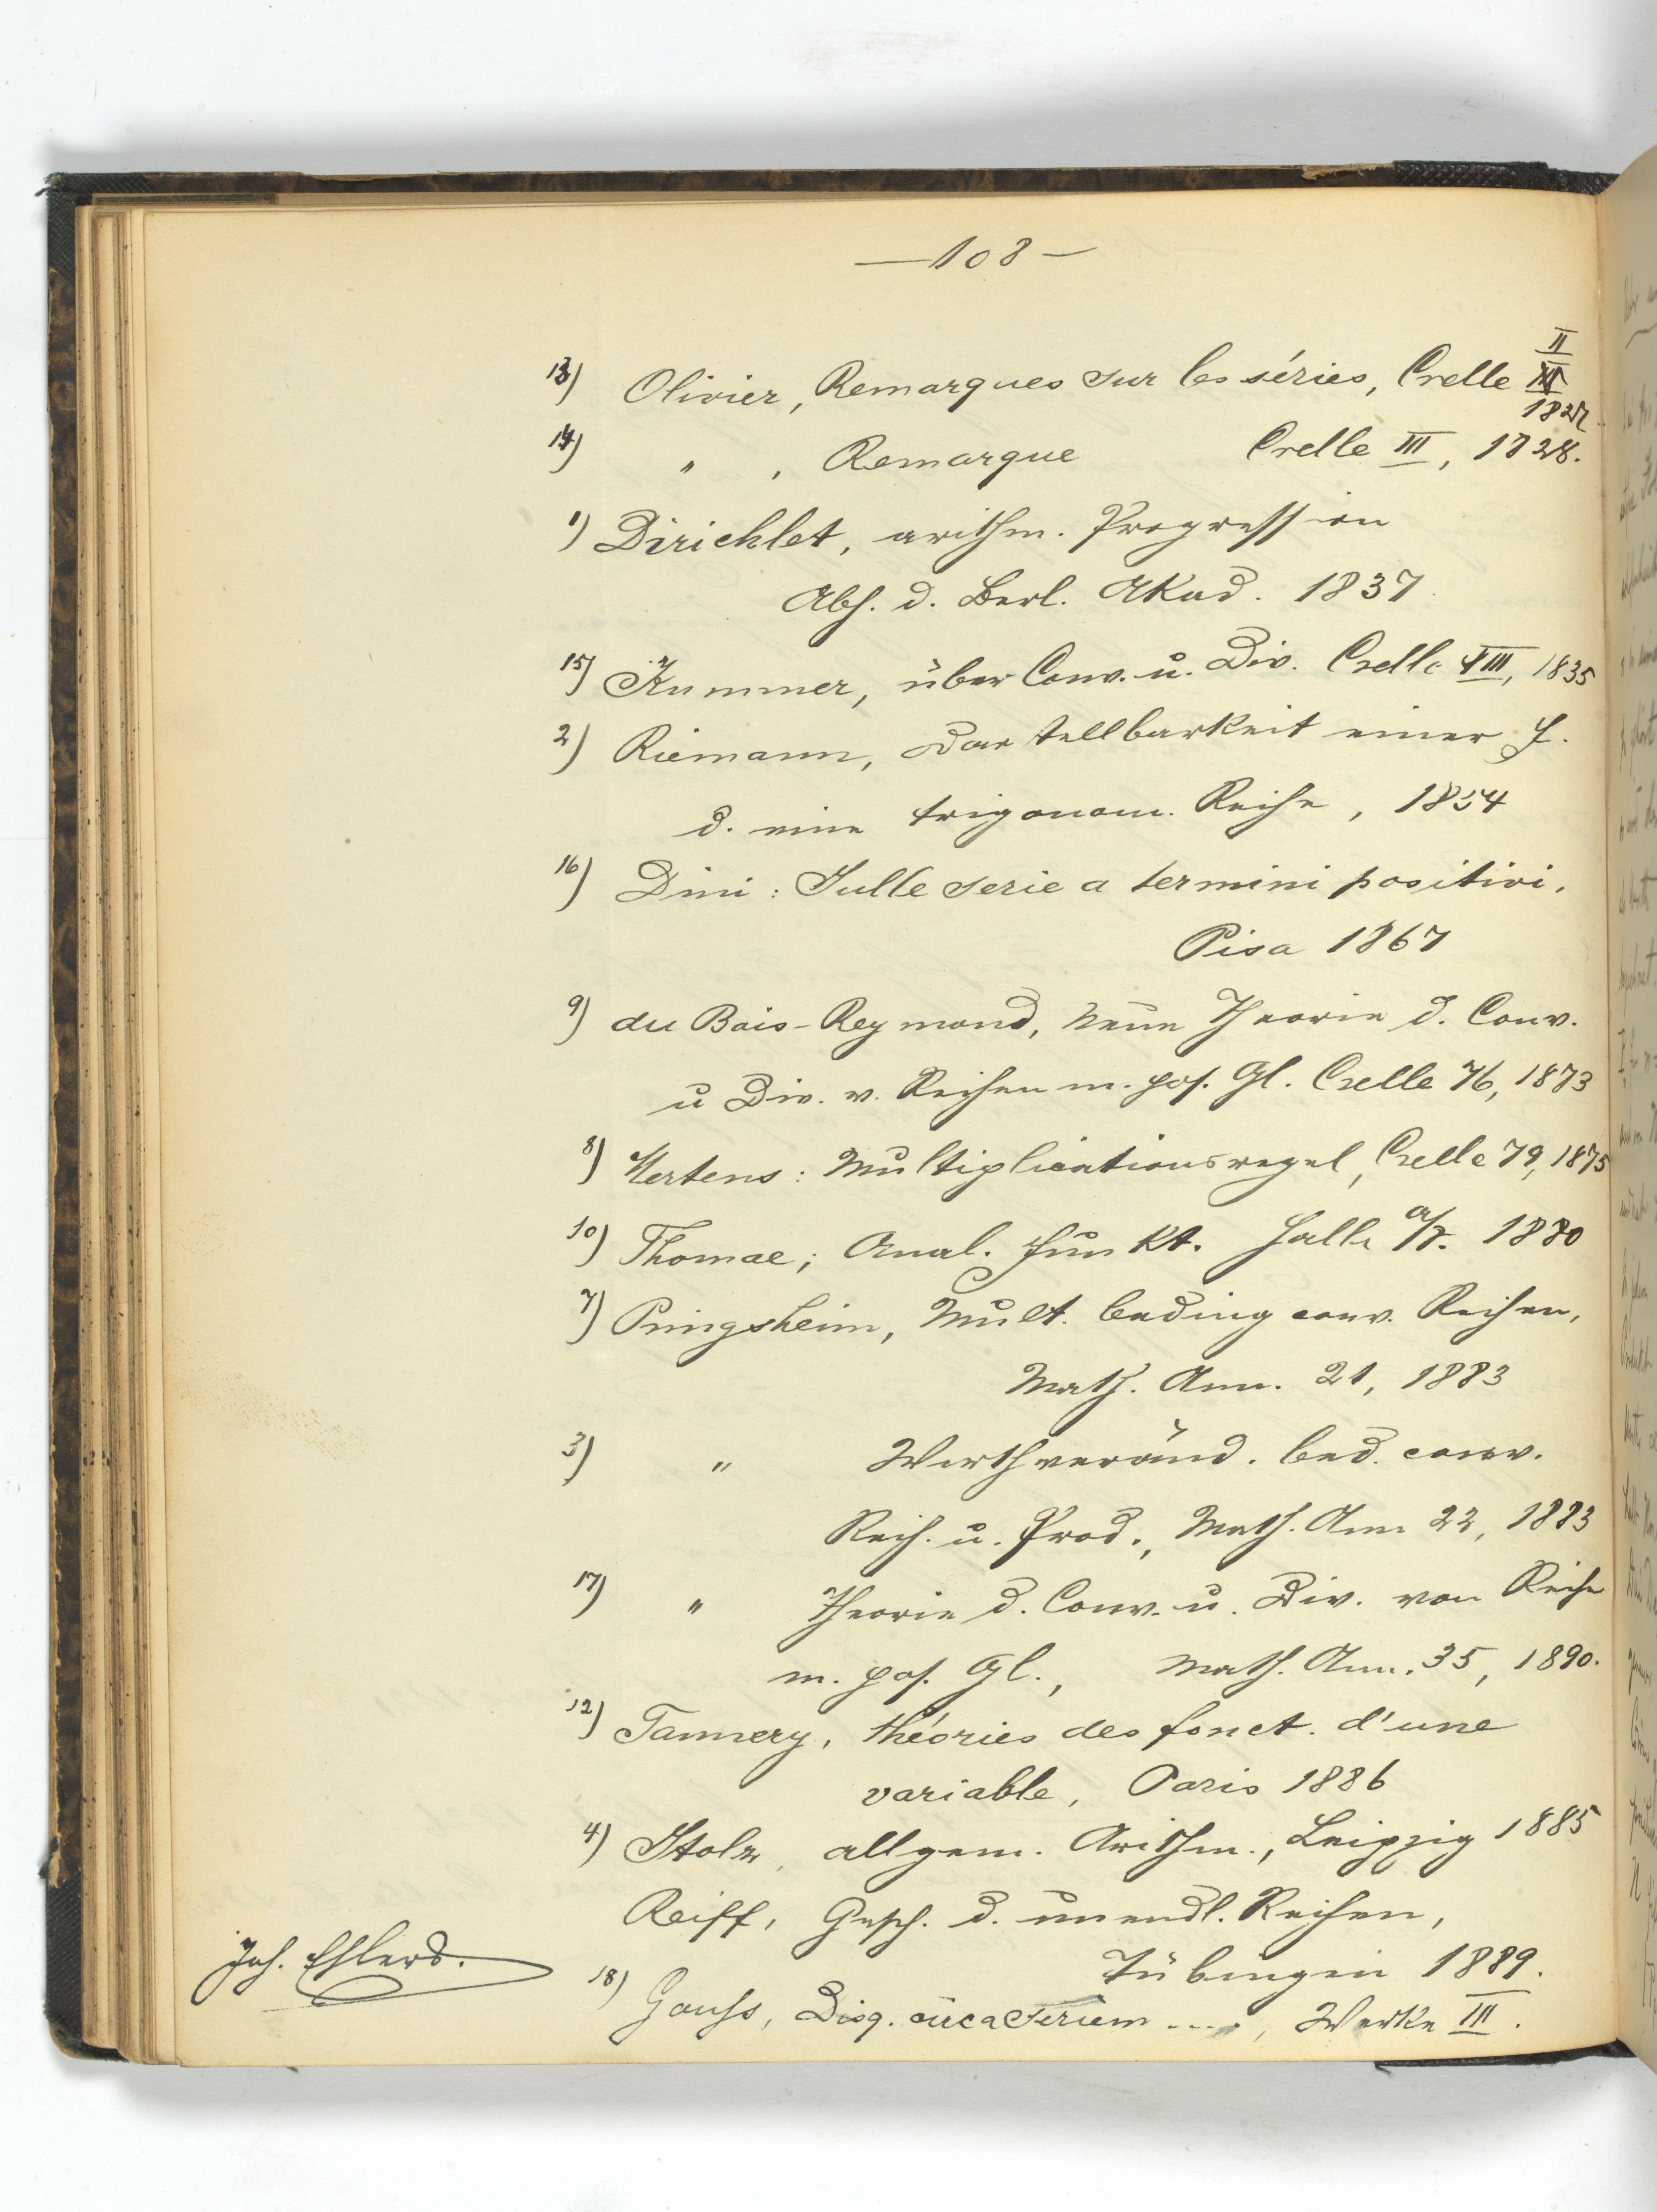 — 108 —
13) Olivier, Remarques sur les séries, Crelle II
1827
14) " , Remarque Crelle III, 1828.
1) Dirichlet, arithm. Progression
Abh. d. Berl. Akad. 1837
15) Kummer, über Conv. u. Div. Crelle XIII, 1835
2) Riemann, Darstellbarkeit einer f.
d. eine trigonom. Reihe, 1854
16) Dini: Sulle serie a termini positivi,
Pisa 1867
9) du Bois-Reymond, neue Theorie d. Conv.
u Div. v. Reihen m. pos. Gl. Crelle 76, 1873
8) Mertens: Multiplicationsregel, Crelle 79, 1875
10) Thomae; Anal. Funkt. Halle a/S. 1880
7) Pringsheim, Mult. beding conv. Reihen,
Math. Ann. 21, 1883
3) " Werthveränd. bed. conv.
Reih. u. Prod., Math. Ann 22, 1883
17) " Theorie d. Conv. u. Div. von Reihe
m. pos. Gl., Math. Ann. 35, 1890.
12) Tannery, théories des fonct. d'une
variable, Paris 1886
4) Stolz, allgem. Arithm., Leipzig 1885
Reiff, Gesch. d. unendl. Reihen,
Tübingen 1889.
Joh. Ehlers.
18) Gauss, Disq. circa seriem ...., Werke III.